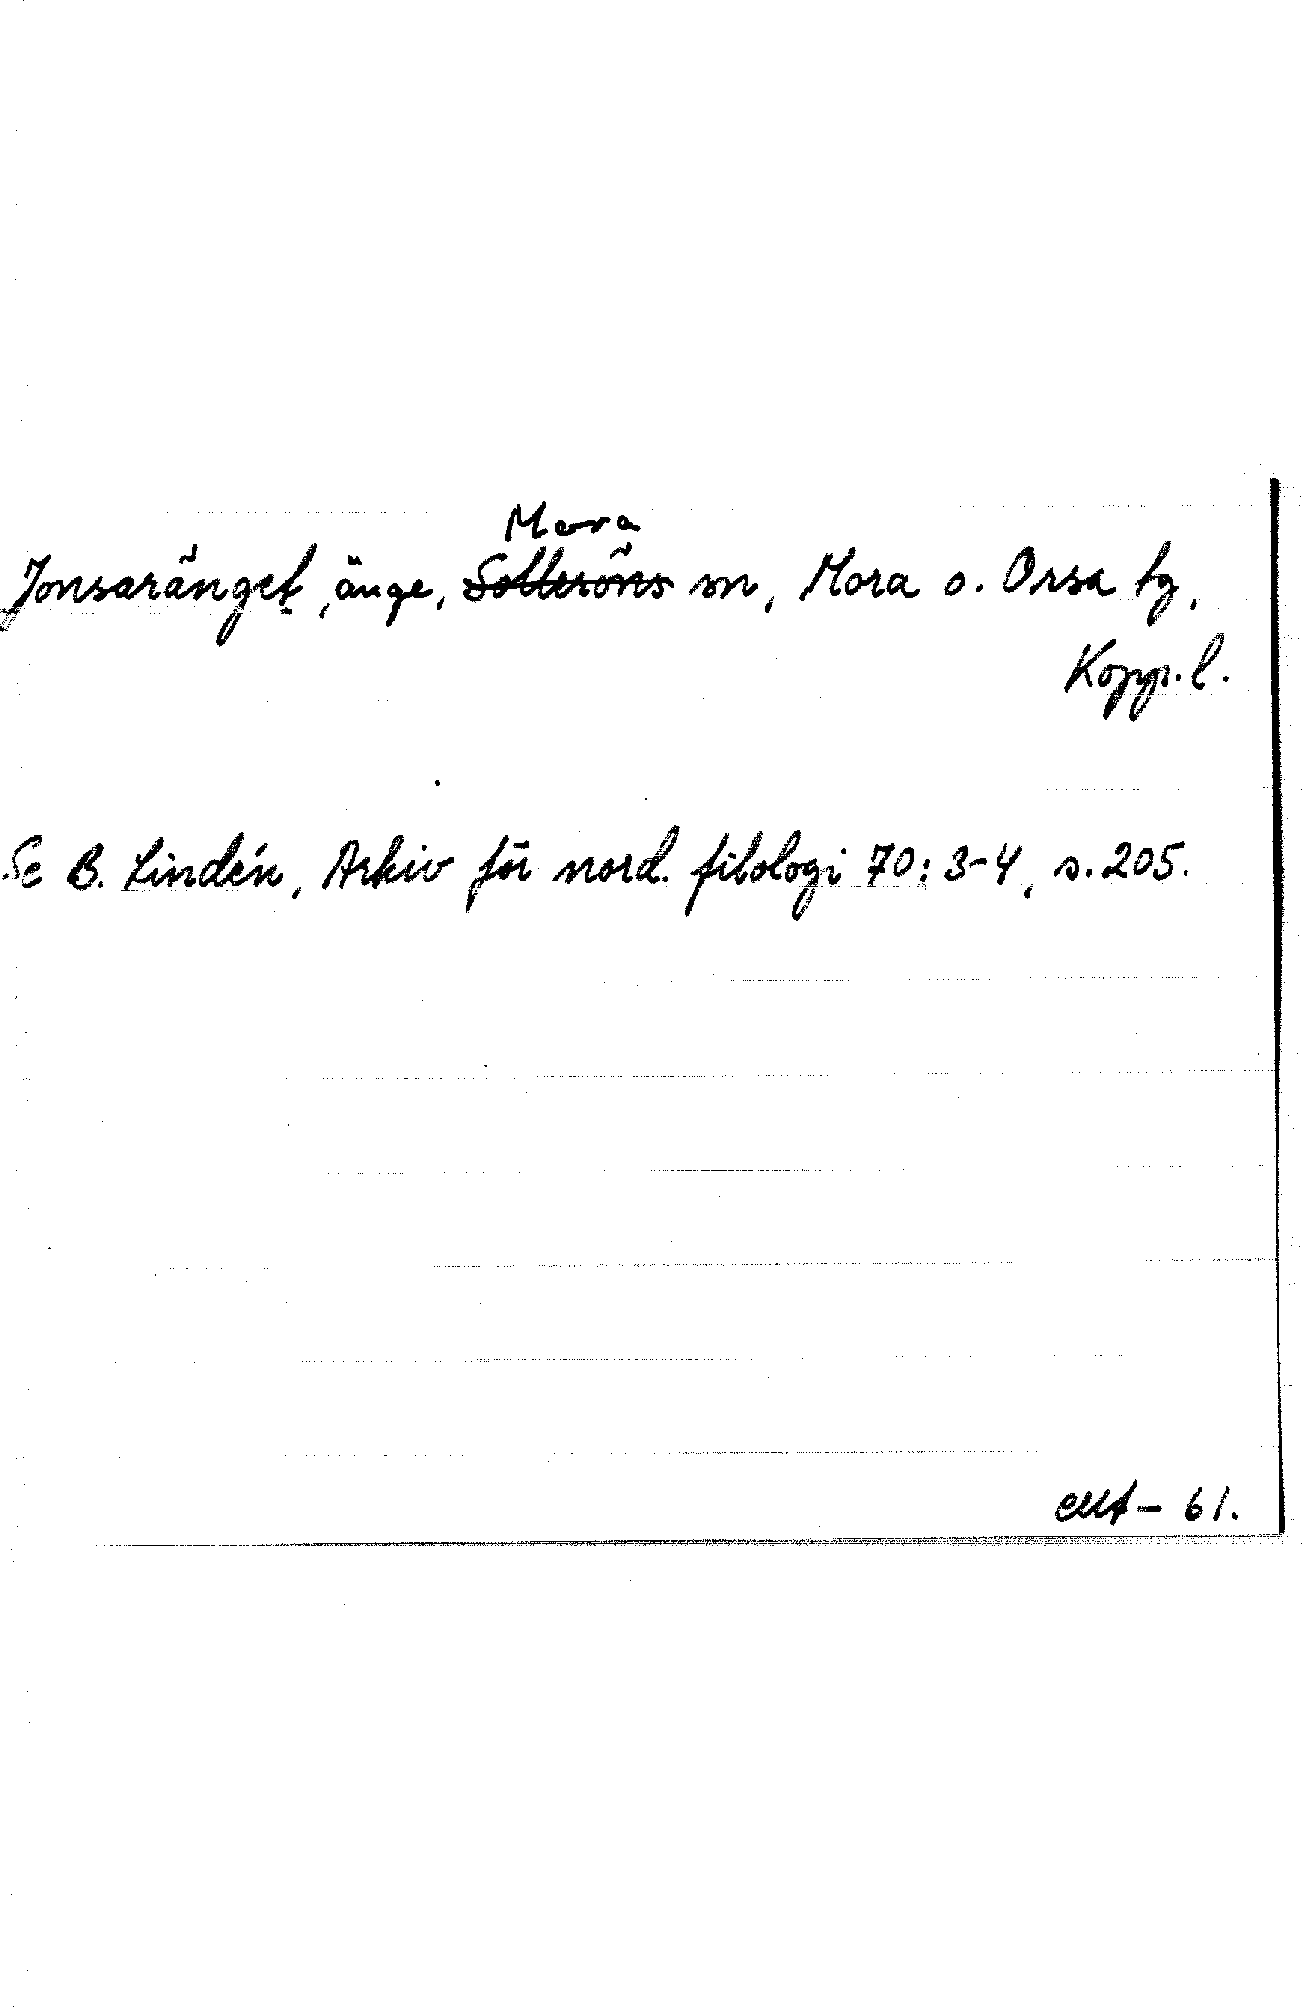 Mora
Jonsaränget, änge, Solleröns sn, Mora o. Orsa tg,
Kopp. l.
Se B. Lindén, Arkiv för nord. filologi 70: 3-4, s. 205.
- 61.